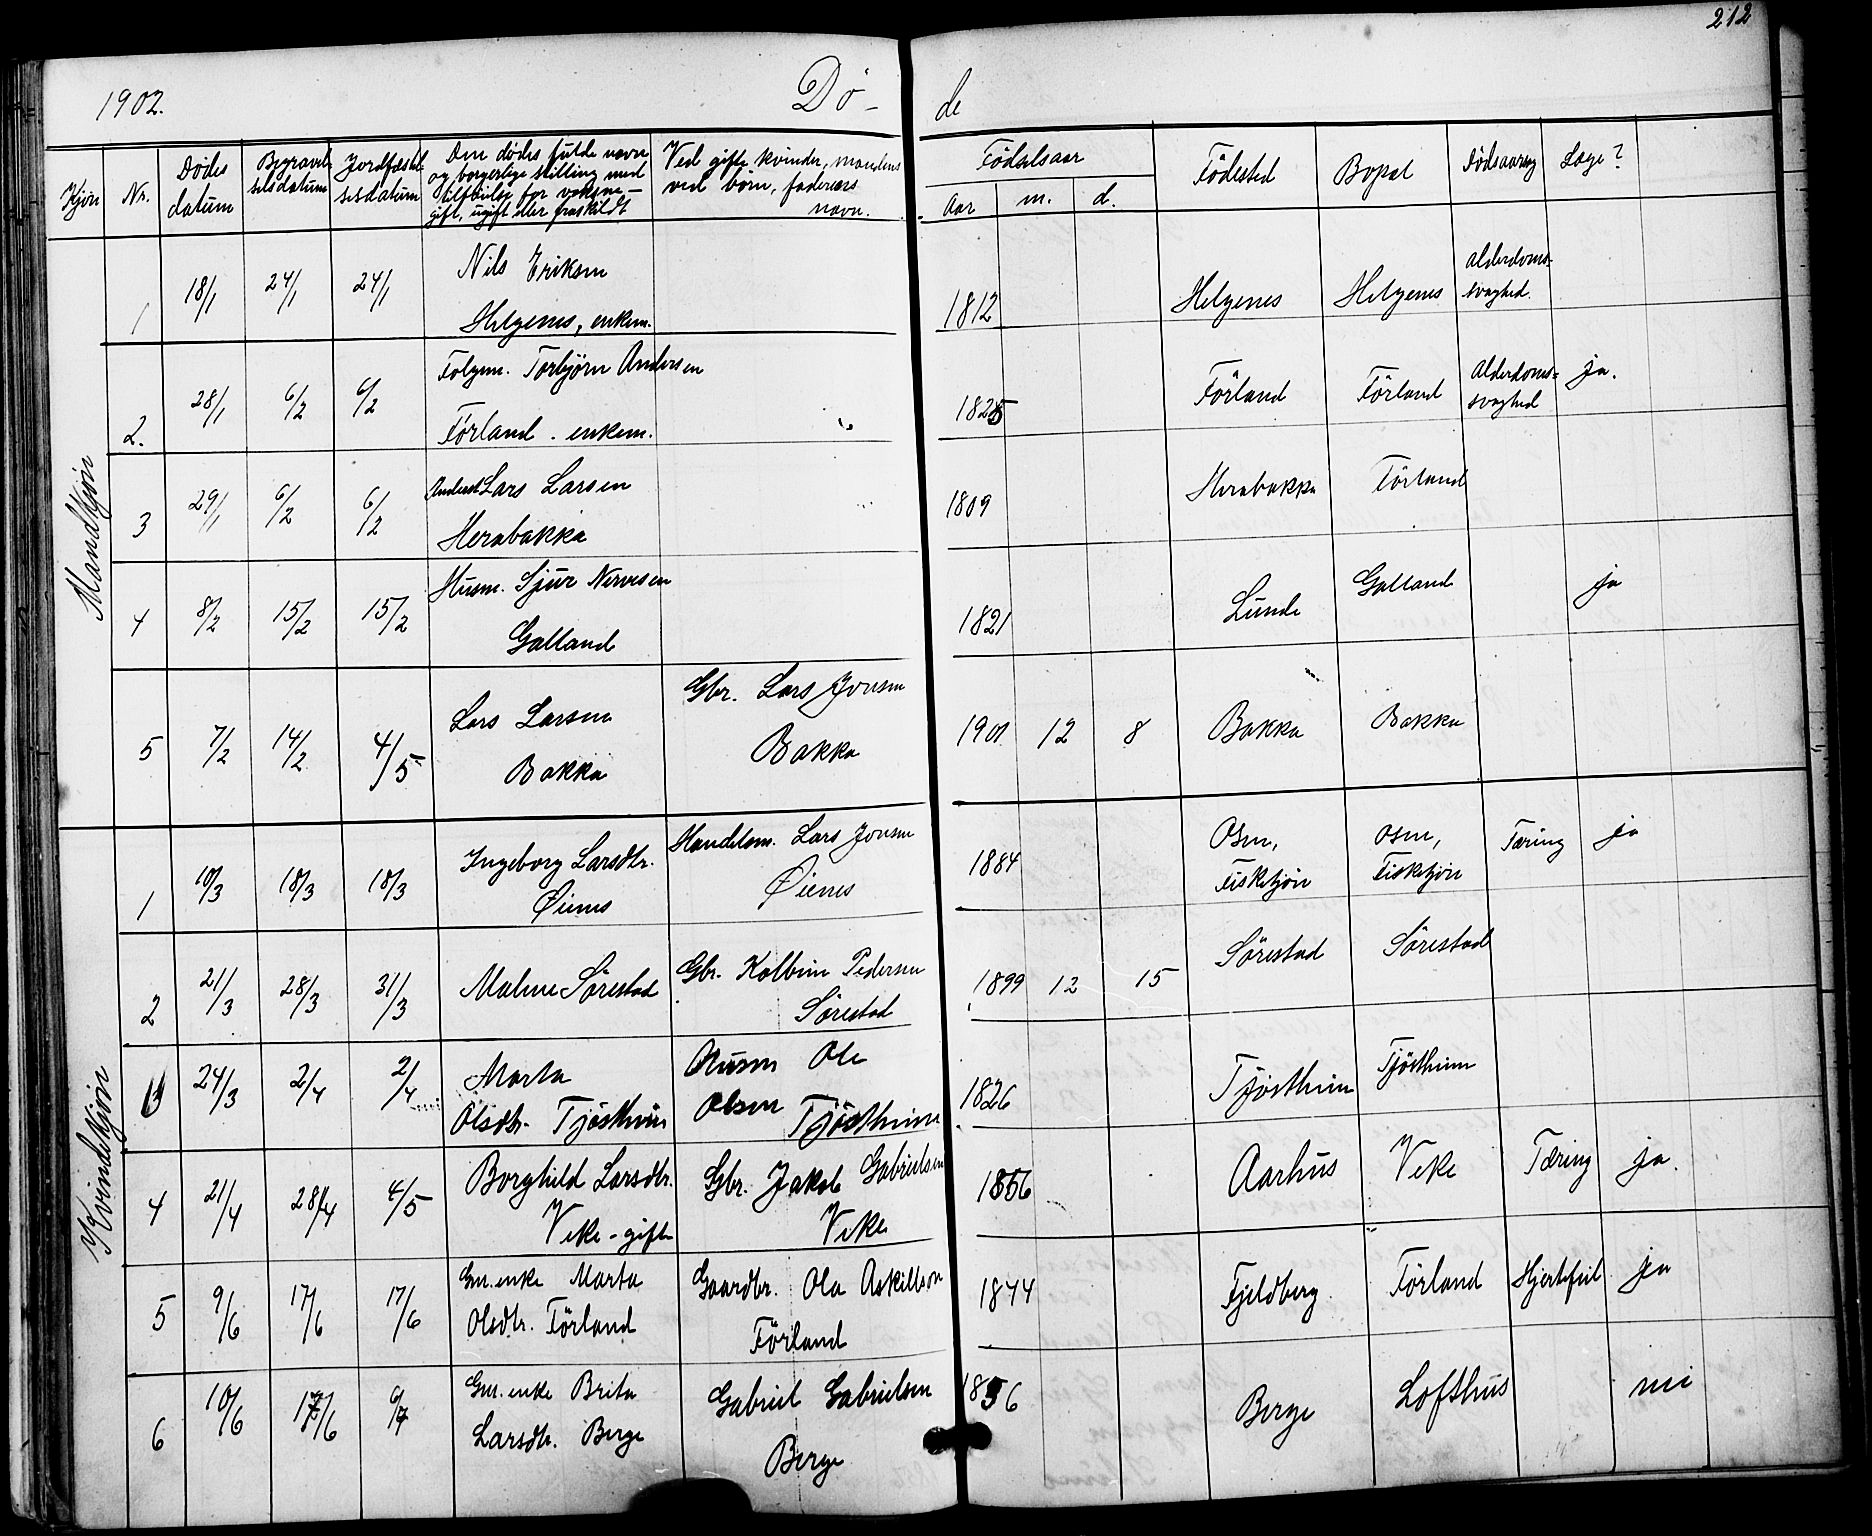 212
1902. Dö- de
Kjön Nr. Dödsdatum Begravelsesdatum Jordfæstelsesdatum Den dödes fulde navn og borgerlige stilling med tilföielse for voksne – gift, ugift eller fraskildt Ved gifte kvinder, mandens ved börn, faderens navn. Födselsaar Aar m. d. Födested Bopæl Dödsaarsag Læge?
Mandkjön
1 18/1 24/1 24/1 Nils Eriksen Helgenes, enkem. 1812 Helgenes Helgenes Alderdoms- svaghed.
2. 28/1 6/2 6/2 Folgem. Torbjörn Andersen Förland . enkem. 1825 Förland Förland Alderdoms= svaghed ja.
3 29/1 6/2 6/2 Lars Larsen Herabakka 1809 Herabakka Förland
4 8/2 15/2 15/2 Husm. Sjur Nervesen Galland 1821 Lunde Galland ja
5 7/2 14/2 4/5 Lars Larsen Bakka Gbr. Lars Jonsen Bakka 1901 12 8 Bakka Bakka
Kvindekjön
1 10/3 18/3 18/3 Ingeborg Larsdtr. Öienes Handelsm. Lars Jonsen Öienes 1884 Osen, Fisketjön Osen, Fisketjön Tæring ja
2 21/3 28/3 31/3 Malene Sörestad Gbr. Kolbein Pedersen Sörestad 1899 12 15 Sörestad Sörestad
3 24/3 2/4 2/4 Marta Olsdtr. Tjöstheim Husm Ole Olsen Tjöstheim 1826 Tjöstheim Tjöstheim
4 21/4 28/4 4/5 Borghild Larsdtr. Veke - gift Gbr. Jakob Gabrielsen Veke 1856 Aarhus Veke Tæring ja.
5 9/6 17/6 17/6 Gm. enke Marta Olsdtr. Förland Gaardbr. Ola Askildson Förland 1844 Fjeldberg Förland Hjertefeil ja
6 10/6 17/6 6/7 Gm. enke Brita Larsdtr. Berge Gabriel Gabrielsen Berge 1856 Berge Lofthus nei